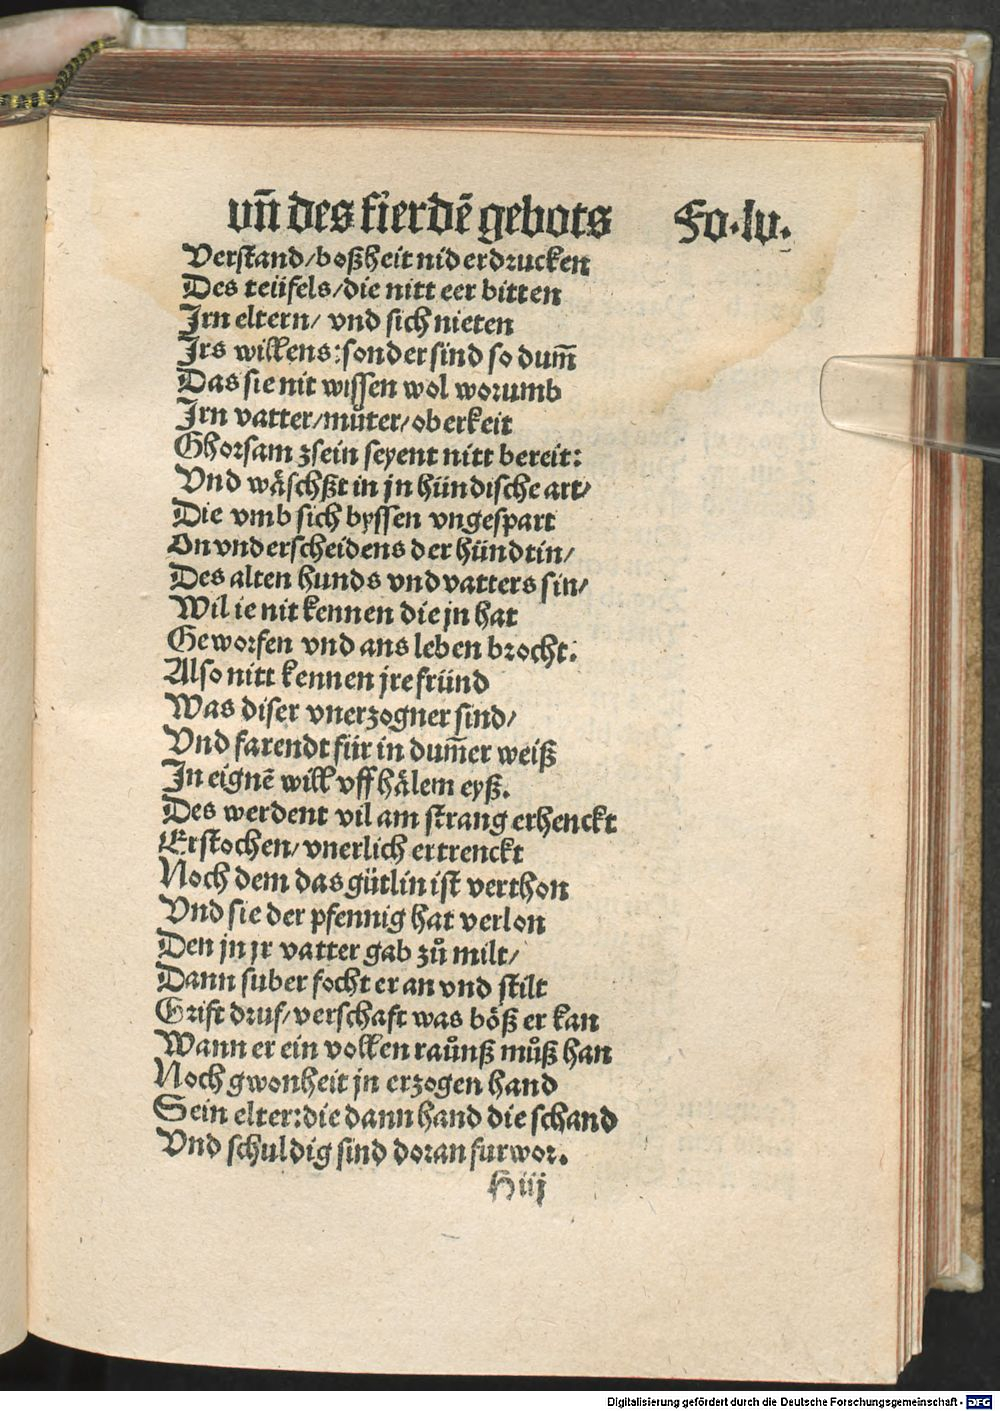 vñ des fierdẽ gebots Fo.lv.
Verstand/boßheit niderdrucken
Des teüfels/die nitt eer bitten
Jrn eltern/ vnd sich nieten
Jrs willens:sonder sind so dum̃
Das sie nit wissen wol worumb
Jrn vatter/můter/oberkeit
Ghorsam zsein seyent nitt bereit:
Vnd wäschßt in jn hündische art/
Die vmb sich byssen vngespart
On vnderscheidens der hündtin/
Des alten hunds vnd vatters sin/
Wil ie nit kennen die jn hat
Geworfen vnd ans leben brocht:
Also nitt kennen jre fründ
Was diser vnerzogner sind/
Vnd farendt für in dum̃er weiß
In eignẽ will vff hälem eyß.
Des werdent vil am strang erhenckt
Erstochen/vnerlich ertrenckt
Noch dem das gütlin ist verthon
Vnd sie der pfennig hat verlon
Den jn jr vatter gab zů milt/
Dann suber focht er an vnd stilt
Grift druf/verschaft was böß er kan
Wann er ein vollen raůnß můß han
Noch gwonheit jn erzogen hand
Sein elter:die dann hand die schand
Vnd schuldig sind doran furwor.
H iij
Digitalisierung gefördert durch die Deutsche Forschungsgemeinschaft - DFG